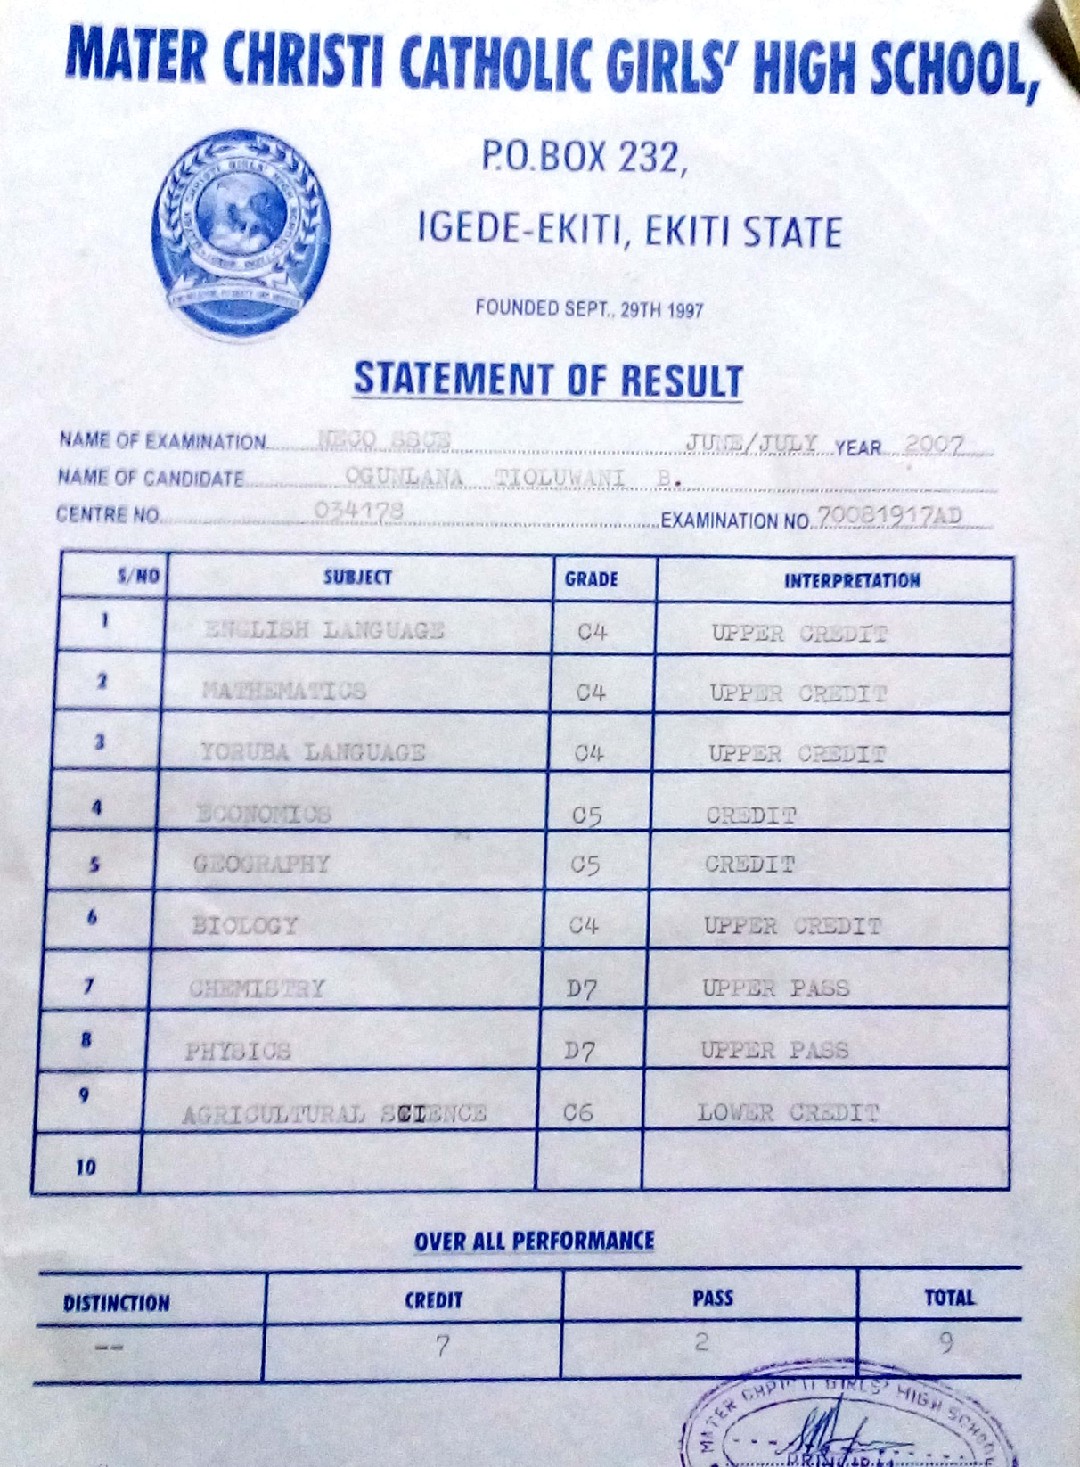 MATER CHRISTI CATHOLIC GIRLS' HIGH SCHOOL,
P.O.BOX 232,
IGEDE-EKITI, EKITI STATE
FOUNDED SEPT., 29TH 1997
STATEMENT OF RESULT
NAME OF EXAMINATION NECO SSCE JUNE/JULY YEAR 2007
NAME OF CANDIDATE OGUNLANA TIOLUWANI B.
CENTRE NO. 034178 EXAMINATION NO. 70081917AD
S/NO SUBJECT GRADE INTERPRETATION
1 ENGLISH LANGUAGE C4 UPPER CREDIT
2 MATHEMATICS C4 UPPER CREDIT
3 YORUBA LANGUAGE C4 UPPER CREDIT
4 ECONOMICS C5 CREDIT
5 GEOGRAPHY C5 CREDIT
6 BIOLOGY C4 UPPER CREDIT
7 CHEMISTRY D7 UPPER PASS
8 PHYSICS D7 UPPER PASS
9 AGRICULTURAL SCIENCE C6 LOWER CREDIT
10
OVER ALL PERFORMANCE
DISTINCTION CREDIT PASS TOTAL
-- 7 2 9
MATER CHRISTI GIRLS' HIGH SCHOOL
PRINCIPAL